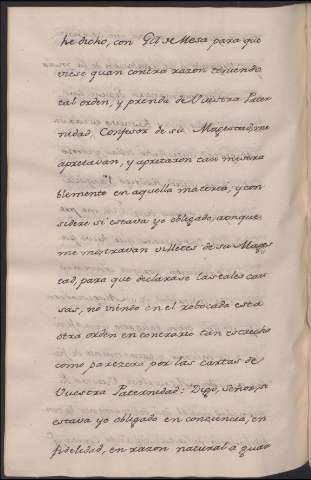 he dicho, con Gil de Mesa para que
viese quan contra razon teniendo
tal orden, y prenda de Vuestra Pater
nidad, Confesor de su Magestad, me
apretavan, y apretaron casi misera
blemente en aquella materia, y con
sidere si estava yo obligado, aunque
me mostravan villetes de su Mages
tad, para que declarase las tales cau
sas, no viendo en el rebocada esta
otra orden en contrario tan estrecho
como parezera por las cartas de
Vuestra Paternidad: Digo, Señor, si
estava yo obligado en conciencia, en
fidelidad, en razon natural a guar